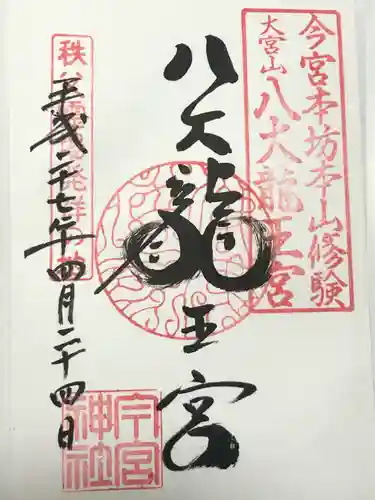 今宮本坊本山修験
大宮山
八大龍王宮
八大龍王宮
平成二十七年四月二十四日
今宮神社